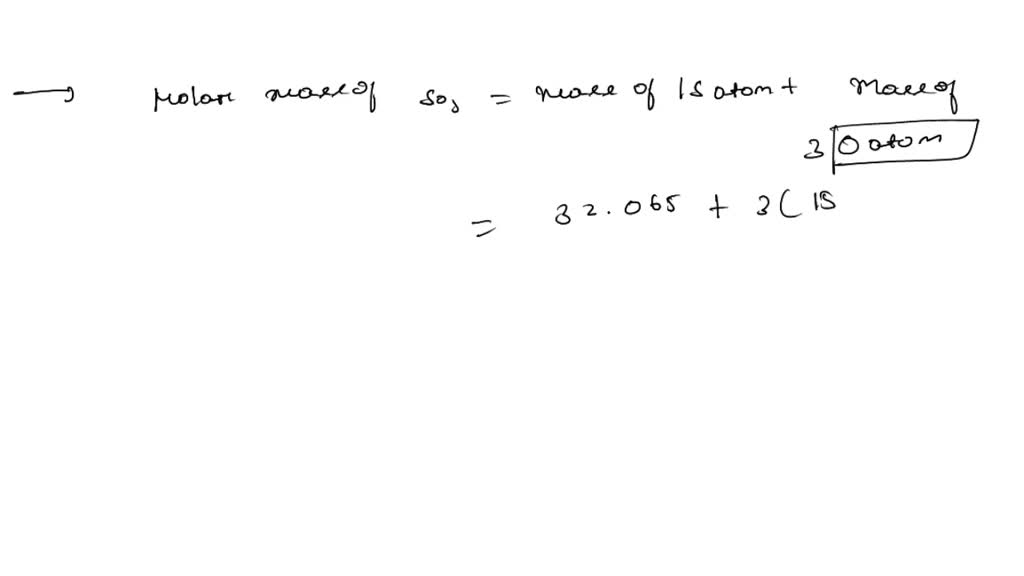 → Molar mass of SO3 = mass of 1 S atom + Mass of
3 O atom
= 32.065 + 3( 15